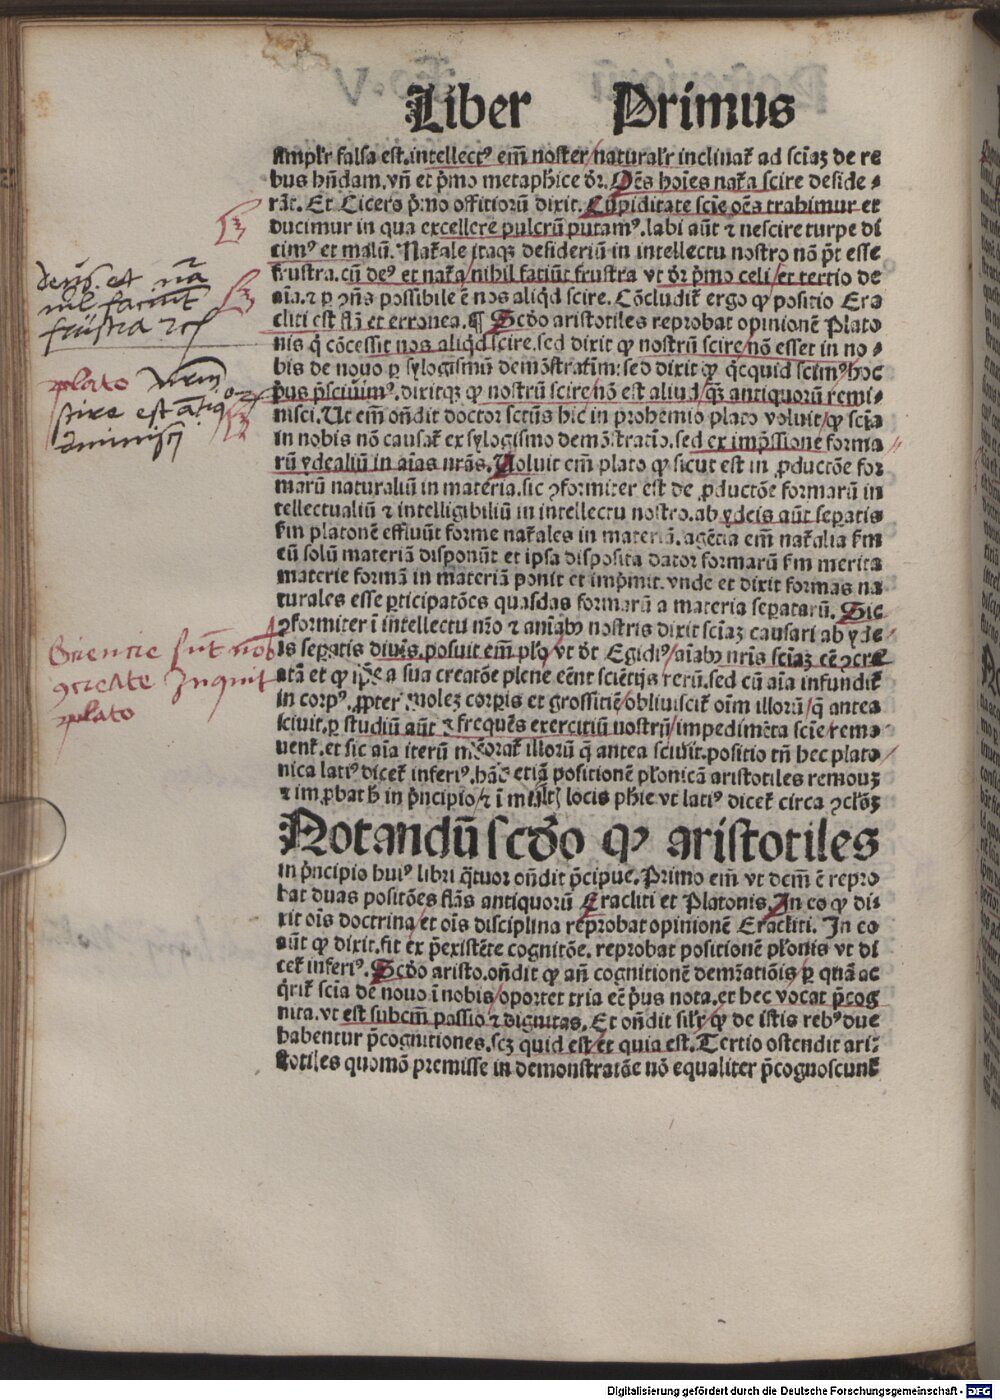 Liber Primus
simplr̄ falsa est. intellectꝰ em̄ noster / naturalr̄ inclinat̄ ad sciaꝫ de re
bus hn̄dam. vn̄ et p̄mo metaph̄ice dr̄. Oēs hoīes nat̄a scire deside⸗
rāt. Et Cicero p̄mo offitiorū dixit. Cupiditate sciē oēs trahimur et
ducimur in qua excellere pulcrū putamꝰ. labi aūt ⁊ nescire turpe di
cimꝰ et malū. Nat̄ale itaqꝫ desideriū in intellectu nostro nō p̄t esse
frustra. cū deꝰ et nat̄a / nihil fatiūt frustra vt dr̄ p̄mo celi / et tertio de
aīa. ⁊ ꝑ ꝯn̄s possibile ē nos aliqd̄ scire. Cōcludit̄ ergo ꝙ positio Era
cliti est fl̄a et erronea. ¶ Scd̄o aristotiles reprobat opinionē Plato
nis q̄ cōcessit nos aliqd̄ scire. sed dixit ꝙ nostrū scire / nō esset in no⸗
bis de nouo ꝑ sylogismū demōstratiuū: sed dixit ꝙ qc̄quid scimꝰ / hoc
p̄us p̄sciuimꝰ. dixitqꝫ ꝙ nostrū scire / nō est aliud / qꝫ antiquorū remi⸗
nisci. Ut em̄ on̄dit doctor sctūs hic in prohemio plato voluit / ꝙ sciā
in nobis nō causat̄ ex sylogismo demōstratiō. sed ex imp̄ssione forma
rū ydealiū in aīas nr̄as. Uoluit em̄ plato ꝙ sicut est in ꝓductōe for
marū naturaliū in materia. sic ꝯformiter est de ꝓductōe formarū in
tellectualiū ⁊ intelligibiliū in intellectu nostro. ab ydeis aūt sepatis
fm̄ platonē effluūt forme nat̄ales in materiā. agētia em̄ nat̄alia fm̄
eū solū materiā disponūt et ipsa disposita dator formarū fm̄ merita
materie formā in materiā ponit et imp̄mit. vnde et dixit formas na
turales esse ꝑticipatōes quasdas formarū a materia sepatarū. Sic
ꝯformiter ī intellectu nr̄o ⁊ aīabꝰ nostris dixit sciaꝫ causari ab yde
is sepatis diuis. posuit em̄ plō / vt dr̄ Egidiꝰ / aīabꝰ nr̄is sciaꝫ eē ꝯcre
atā et ꝙ ip̄e a sua creatōe plene eēnt sciētijs rerū. sed cū aīa infundit̄
in corpꝰ. ꝓpter molez corꝑis et grossitiē / obliuiscit̄ oīm illorū / q̄ antea
sciuit. ꝑ studiū aūt ⁊ frequēs exercitiū nostrū / impedimēta sciē / remo
uent̄. et sic aīa iterū memorat̄ illorū q̄ antea sciuit. positio tn̄ hec plato⸗
nica latiꝰ dicet̄ inferiꝰ. hāc etiā positionē pl̄onicā aristotiles remouꝫ
⁊ improbat h̄ in p̄ncipio / ⁊ ī multꝭ locis ph̄ie vt latiꝰ dicet̄ circa ꝯclōꝫ
Notandū scd̄o ꝙ aristotiles
in p̄ncipio huiꝰ libri q̄tuor on̄dit p̄cipue. Primo em̄ vt dcm̄ ē repro
bat duas positōes fl̄as antiquorū Eracliti et Platonis. In eo ꝙ di
xit oīs doctrina / et oīs disciplina reprobat opinionē Eracliti. In eo
aūt ꝙ dixit. fit ex p̄existēte cognitōe. reprobat positionē pl̄onis vt di
cet̄ inferiꝰ. Scd̄o aristo. on̄dit ꝙ an̄ cognitionē demr̄atiōis / ꝑ quā ac
q̄rit̄ scīa de nouo ī nobis / oportet tria eē p̄us nota. et hec vocat p̄cog
nita. vt est subcm̄ passio ⁊ dignitas. Et on̄dit sil̄r ꝙ de istis rebꝰ due
habentur p̄cognitiones. scꝫ quid est / et quia est. Tertio ostendit ari⸗
stotiles quomō premisse in demonstratōe nō equaliter p̄cognoscunt̄
deus et na
nil faciūt
frustra ⁊cꝭ
plato nrm̄
scire est antiqoꝝ
reminisci
Scientie sut̄ nob
ꝯcreate Inquit
plato
Digitalisierung gefördert durch die Deutsche Forschungsgemeinschaft - DFG